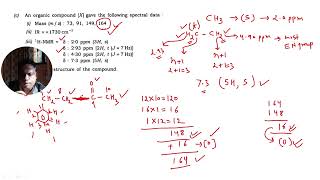 (c) An organic compound [X] gave the following spectral data :
(i) Mass (m/z) : 73, 91, 149, 164
(ii) IR : ν = 1730 cm⁻¹
(iii) ¹H-NMR - δ : 2·0 ppm (3H, s)
δ : 2·93 ppm (2H, t (J = 7 Hz))
δ : 4·30 ppm (2H, t (J = 7 Hz))
δ : 7·3 ppm (5H, s)
structure of the compound
CH₃ → (S) → 2.0 ppm
n+1
n+1
2+1=3
2+1=3
7.3 (5H, S)
12×10=120
16×1=16
1×12=12
148
+16 → [O]
164
164
148
16
(O)